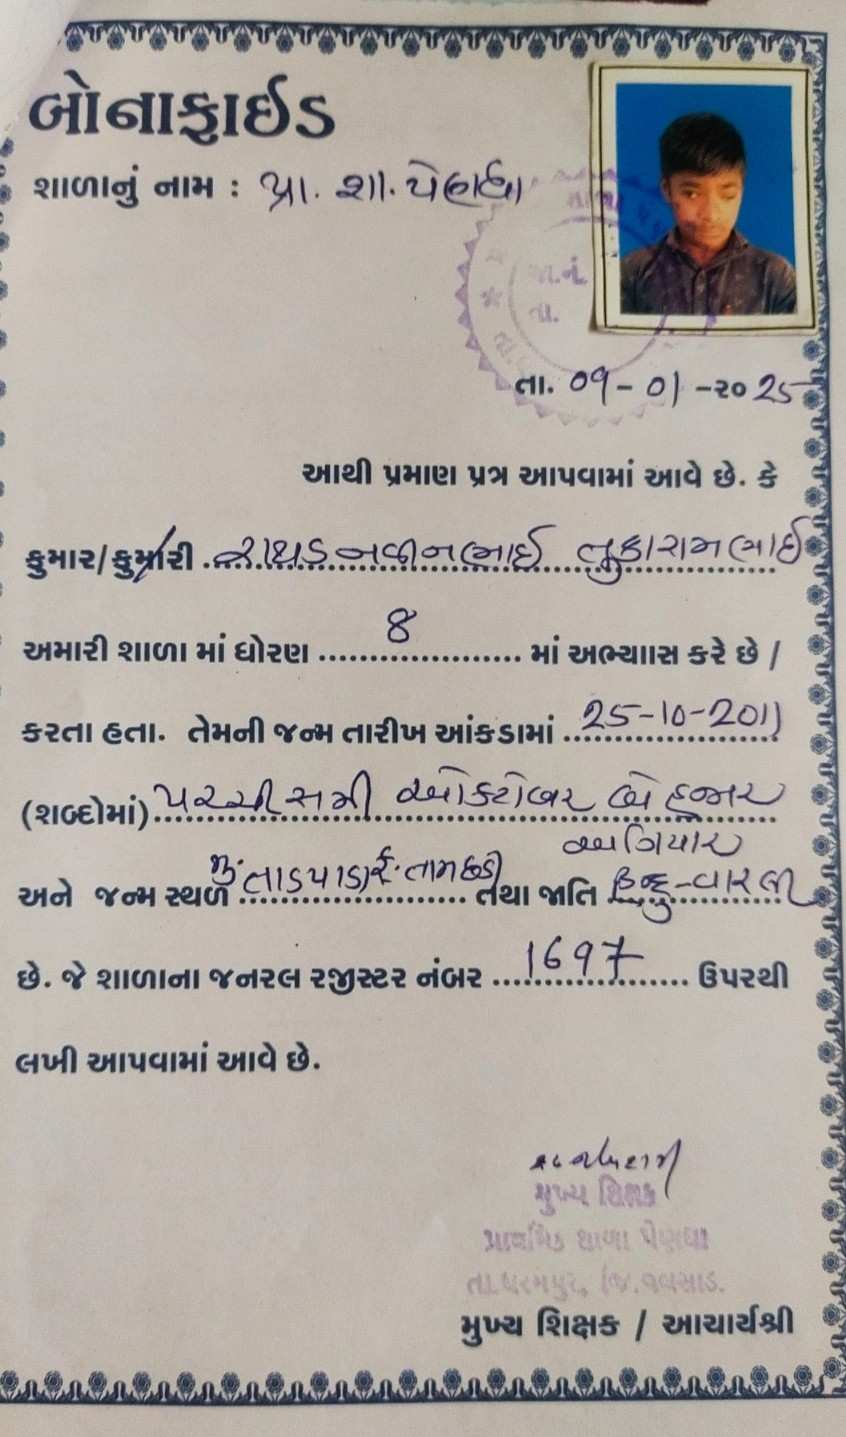 બોનાફાઈડ
શાળાનું નામ : પ્રા. શા. પેણધા
જા.નં.
તા.
તા. ૦૧-૦1-૨૦25
આથી પ્રમાણ પત્ર આપવામાં આવે છે. કે
કુમાર/કુમારી .રાથડ નવીનભાઈ તુકારામભાઈ
અમારી શાળા માં ધોરણ ....8.... માં અભ્યાાસ કરે છે /
કરતા હતા. તેમની જન્મ તારીખ આંકડામાં ..25-10-2011
(શબ્દોમાં) પચ્ચીસમી ઓક્ટોબર બે હજાર
અગિયાર
અને જન્મ સ્થળ મું.તાડપાડા તથા જાતિ હિન્દુ-વારલી
છે. જે શાળાના જનરલ રજીસ્ટર નંબર ....1697.... ઉપરથી
લખી આપવામાં આવે છે.
મુખ્ય શિક્ષક
પ્રાથમિક શાળા પેણધા
તા.ધરમપુર, જિ.વલસાડ.
મુખ્ય શિક્ષક / આચાર્યશ્રી